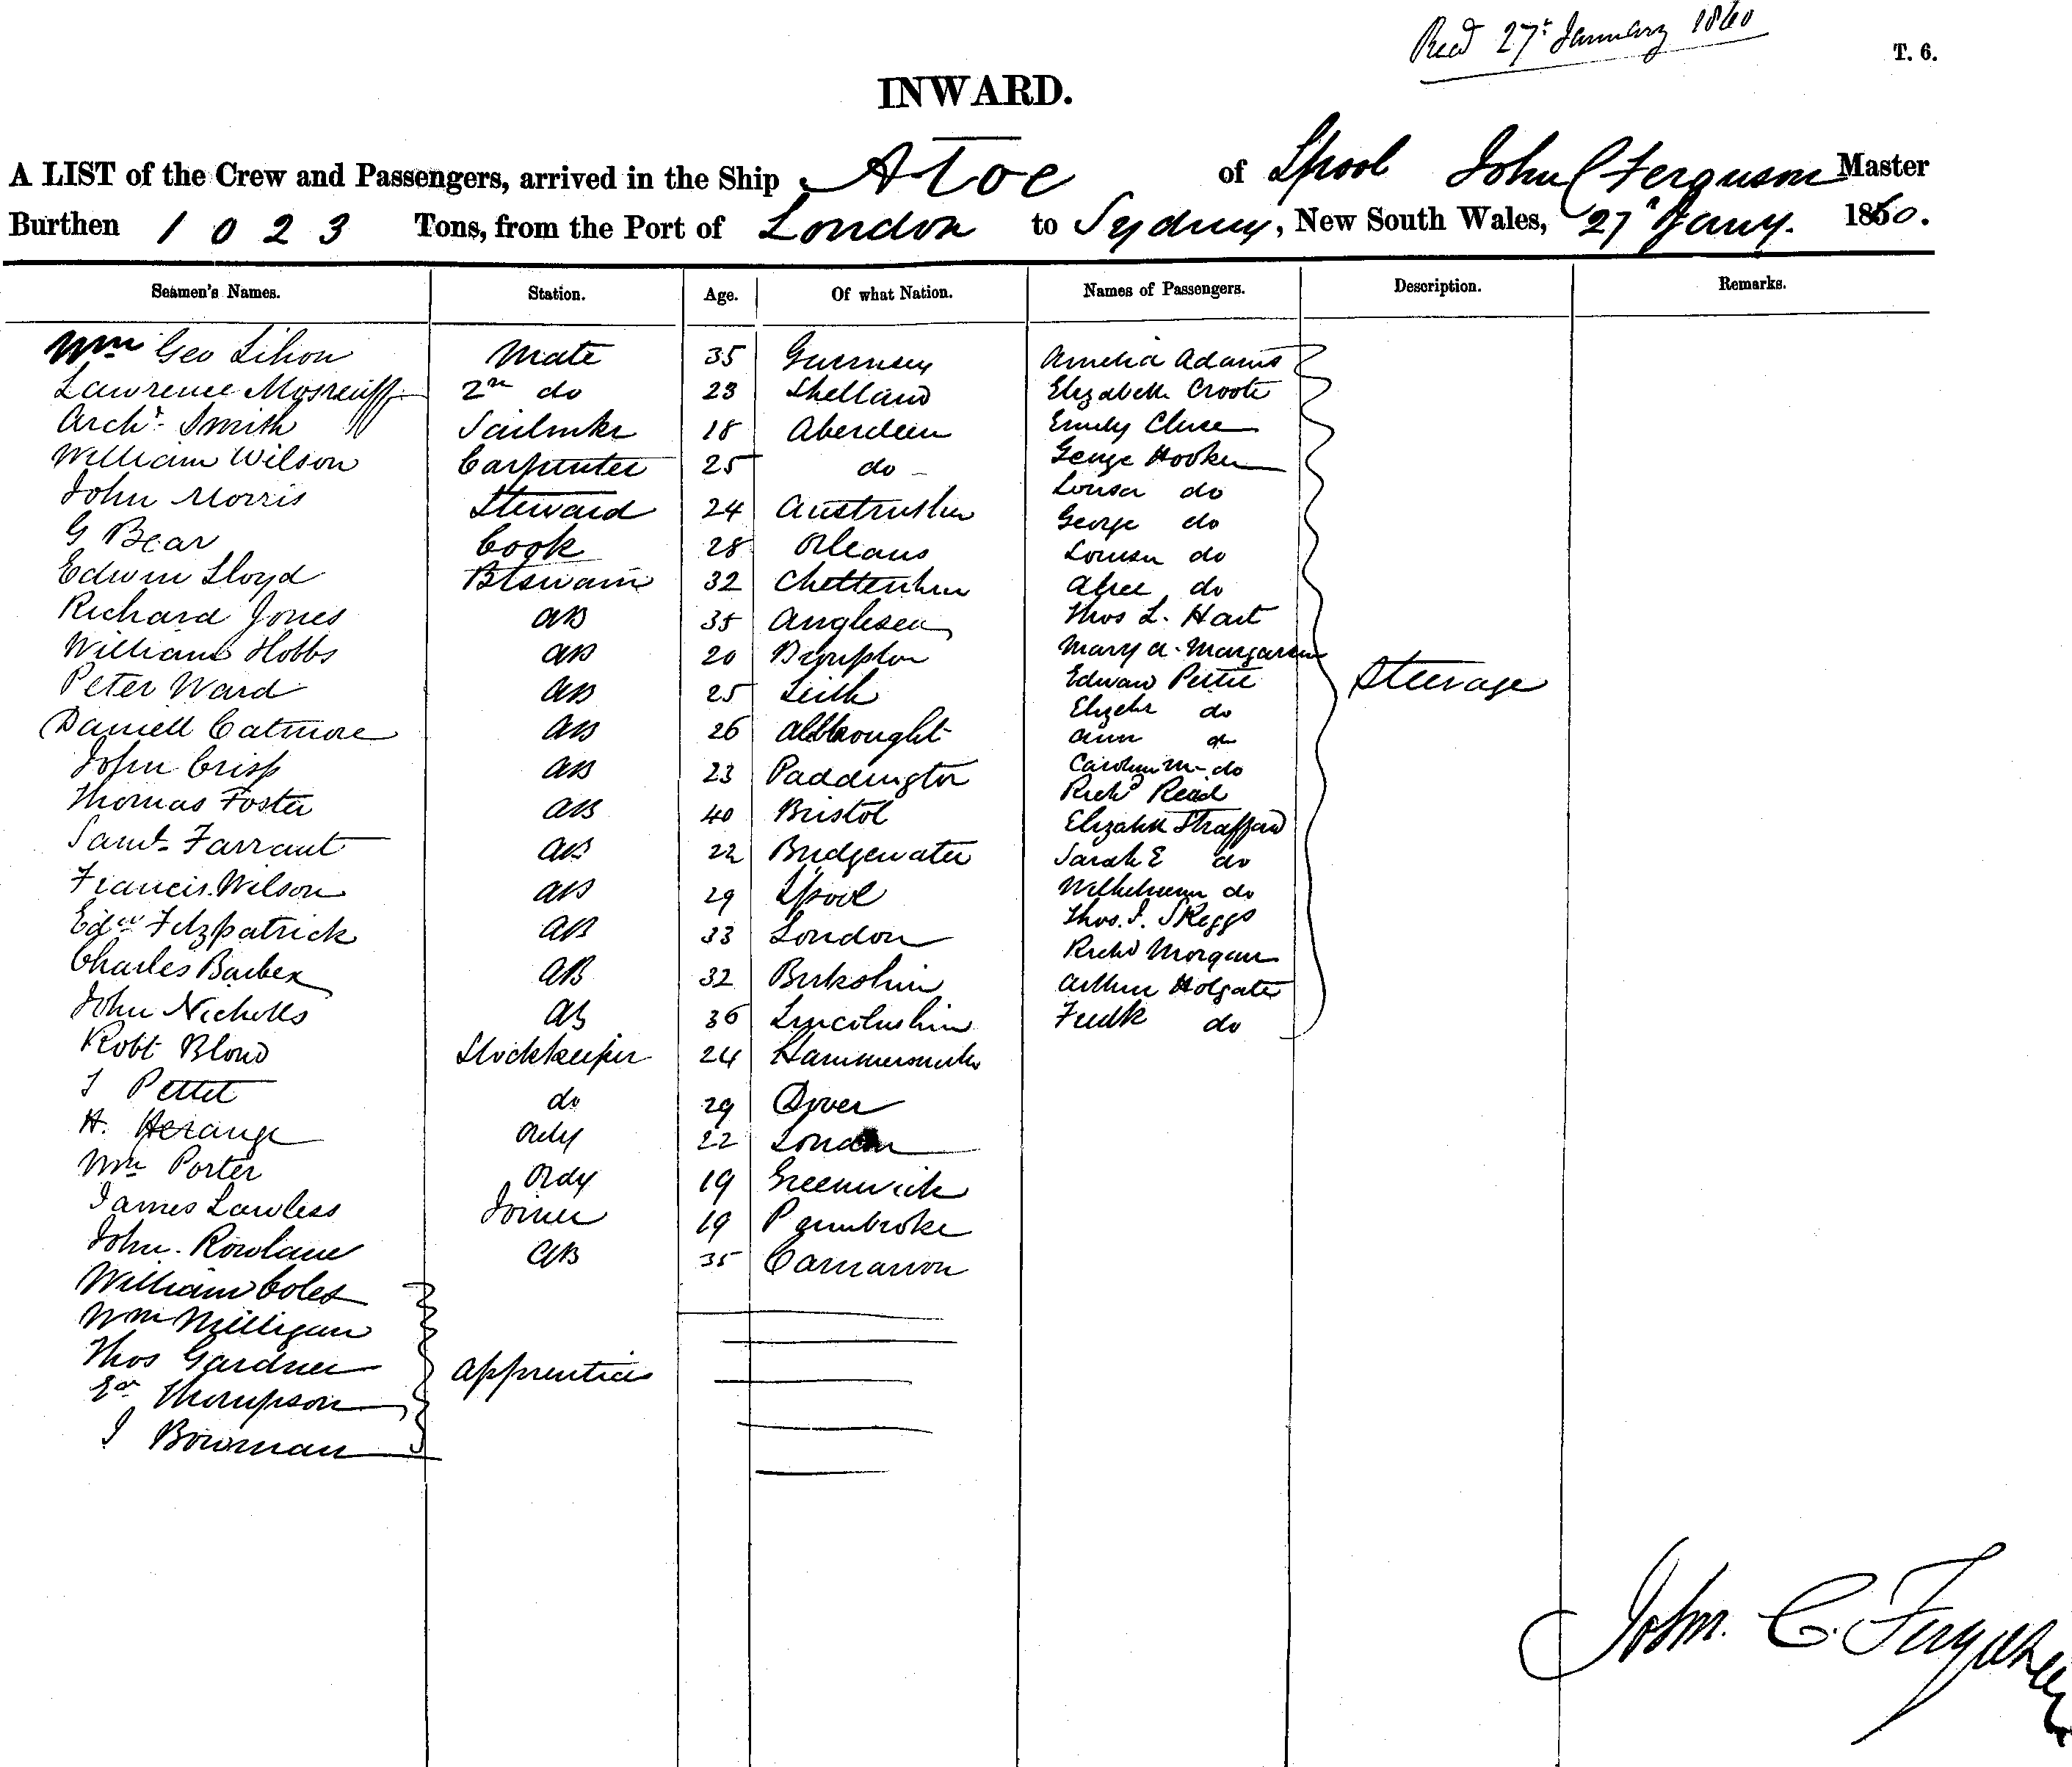 Recd 27th January 1860
T. 6.
INWARD.
A LIST of the Crew and Passengers, arrived in the Ship Atoe of Lpool John C Ferguson Master
Burthen 1023 Tons, from the Port of London to Sydney, New South Wales, 27th Jany. 1860.
Seamen's Names. Station. Age. Of what Nation. Names of Passengers. Description. Remarks.
Wm Geo Lihou Mate 35 Guernsey Amelia Adams
Lawrence 2nd do 23 Shetland Elizabeth Croote
Archd. Smith Sailmkr 18 Aberdeen Emily
William Wilson Carpenter 25 do George Hooker
John Morris Steward 24 Louisa do
G Bear Cook 28 Orleans George do
Edwin Lloyd Btswain 32 Cheltenham Louisa do
Richard Jones AB 35 Anglesea do
William Hobbs AB 20 Brompton Thos L. Hart
Peter Ward AB 25 Leith Mary A.
Daniell Catmore AB 26 Edward Pettie Steerage
John Crisp AB 23 Paddington Elizth do
Thomas Foster AB 40 Bristol Ann do
Saml. Farrant AB 22 Bridgewater Caroline M. do
Francis Wilson AB 29 Lpool Richd Read
Edwd Fitzpatrick AB 33 London Elizabth Strafford
Charles Barber AB 32 Berkshire Sarah E do
John Nicholls AB 36 Lincolnshire Wilhelmena do
Robt Blowd Stockkeeper 24 Hammersmith Thos. J. Skeggs
J Pettet do 29 Dover Richd Morgan
H. Ordy 22 London Arthur Holgate
Wm Porter Ordy 19 Greenwich Fredk do
James Lawless Joiner 19 Pembroke
John Rowland AB 35 Carnarvon
William Coles
Wm Milligan
Thos Gardner Apprentices
Ed Thompson
J Bowman
John. C. Ferguson